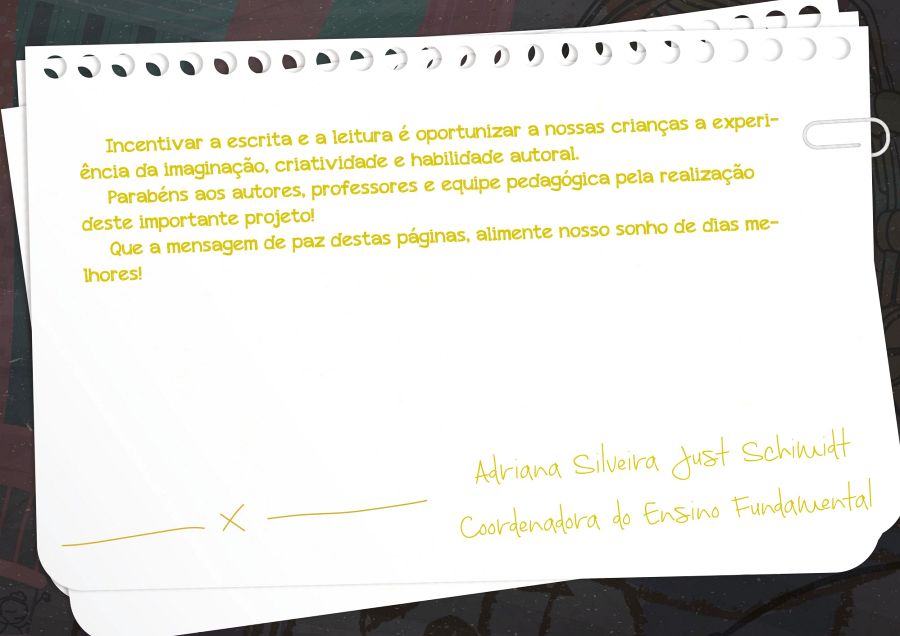 Incentivar a escrita e a leitura é oportunizar a nossas crianças a experi-
ência da imaginação, criatividade e habilidade autoral.
Parabéns aos autores, professores e equipe pedagógica pela realização
deste importante projeto!
Que a mensagem de paz destas páginas, alimente nosso sonho de dias me-
lhores!
Adriana Silveira Just Schimidt
Coordenadora do Ensino Fundamental